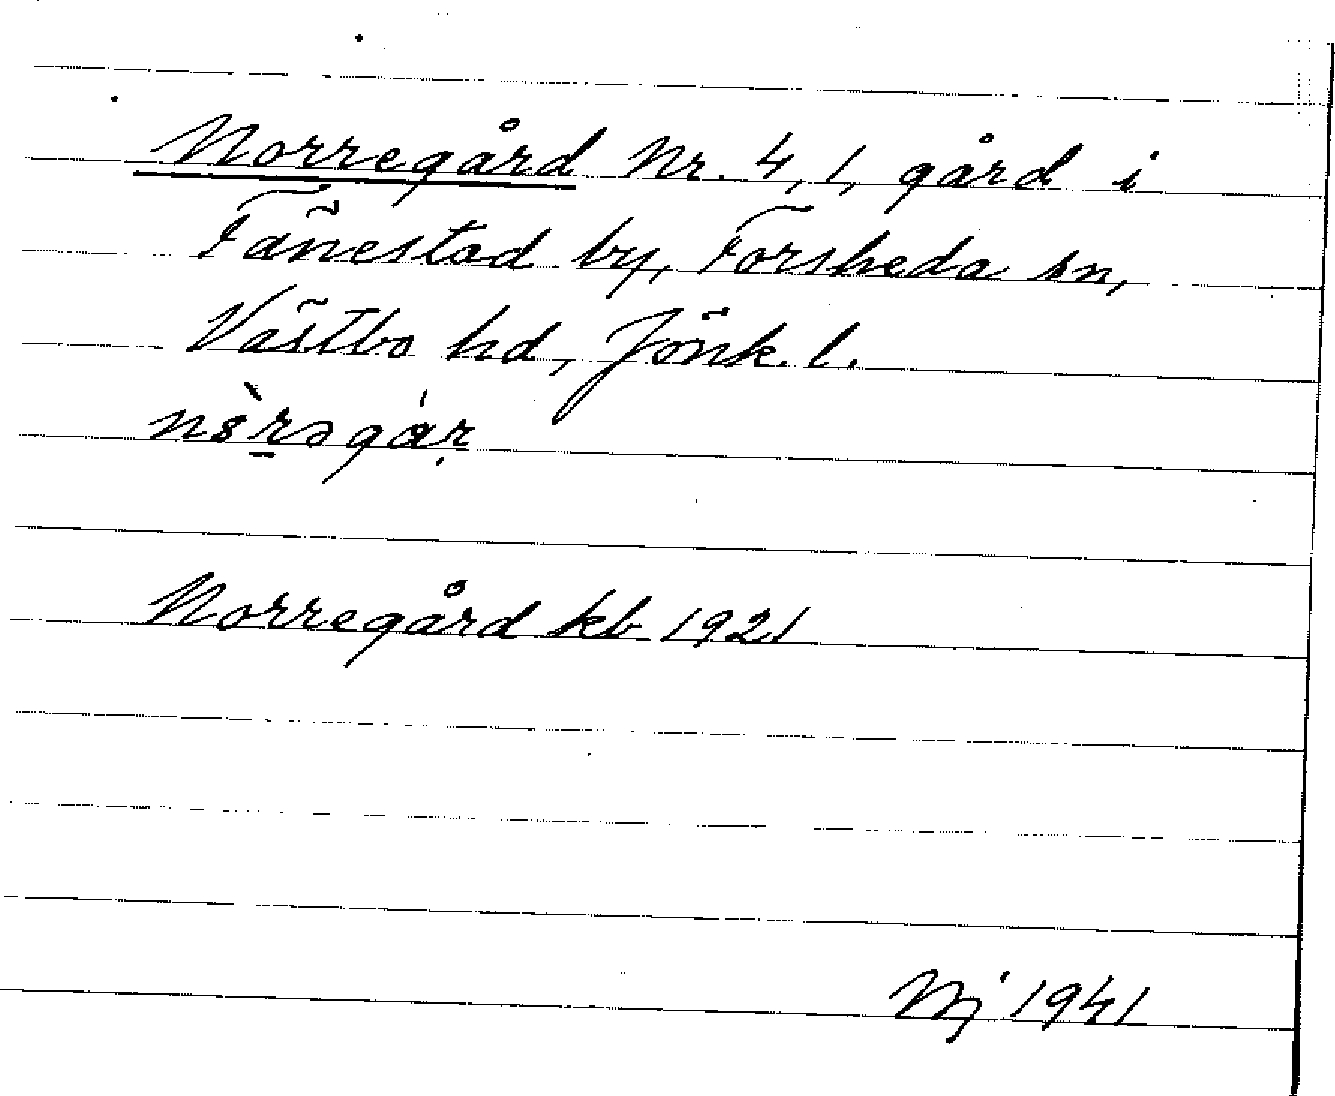 Norregård Nr. 4,1, gård i
Fänestad by, Forsheda sn,
Västbo hd, Jönk. l.
Norregård kb 1921
Nj 1941